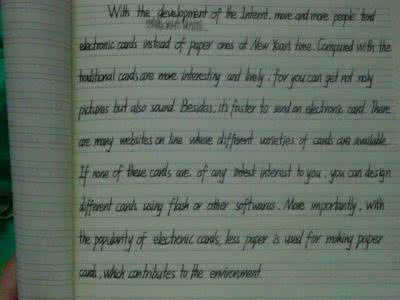 With the development of the Internt, more and more people tend
electronic cards instead of paper ones at New Year's time. Compared with the
traditional cards, are more interesting and lively, for you can get not noly
pictures but also sound. Besides, it's faster to send an electronic card. There
are many websites on line where different varieties of cards are available.
If none of these cards are of any interest to you, you can design
different cards using flash or other softwares. More importantly, with
the popularity of electronic cards, less paper is used for making paper
cards, which contributes to the environment.